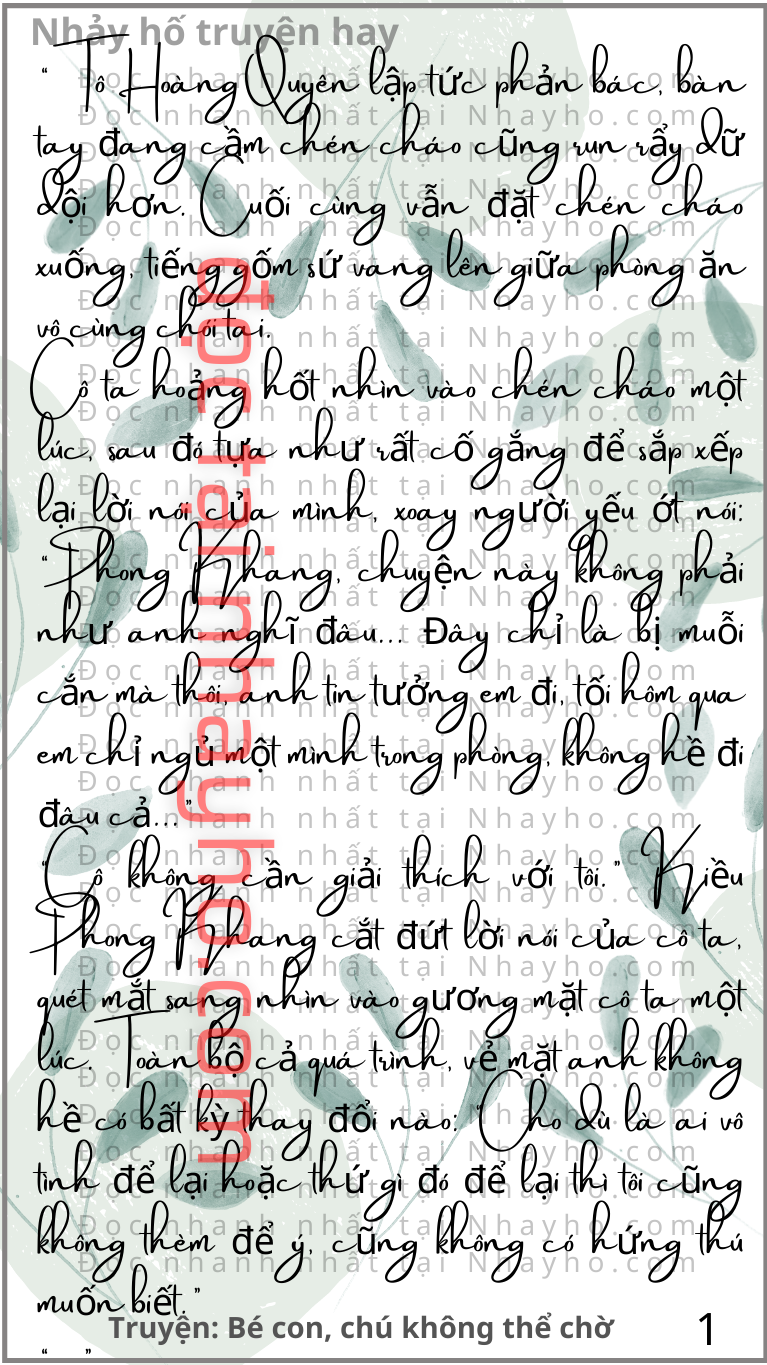 Nhảy hố truyện hay
“ Tô Hoàng Quyên lập tức phản bác, bàn
tay đang cầm chén cháo cũng run rẩy dữ
dội hơn. Cuối cùng vẫn đặt chén cháo
xuống, tiếng gốm sứ vang lên giữa phòng ăn
vô cùng chói tai.
Cô ta hoảng hốt nhìn vào chén cháo một
lúc, sau đó tựa như rất cố gắng để sắp xếp
lại lời nói của mình, xoay người yếu ớt nói:
“Phong Khang, chuyện này không phải
như anh nghĩ đâu... Đây chỉ là bị muỗi
cắn mà thôi, anh tin tưởng em đi, tối hôm qua
em chỉ ngủ một mình trong phòng, không hề đi
đâu cả...”
“Cô không cần giải thích với tôi.” Kiều
Phong Khang cắt đứt lời nói của cô ta,
quét mắt sang nhìn vào gương mặt cô ta một
lúc. Toàn bộ cả quá trình, vẻ mặt anh không
hề có bất kỳ thay đổi nào: “Cho dù là ai vô
tình để lại hoặc thứ gì đó để lại thì tôi cũng
không thèm để ý, cũng không có hứng thú
muốn biết.”
“ ”
Truyện: Bé con, chú không thể chờ
1
đọc tại nhayho.com
Đọc nhanh nhất tại Nhayho.com